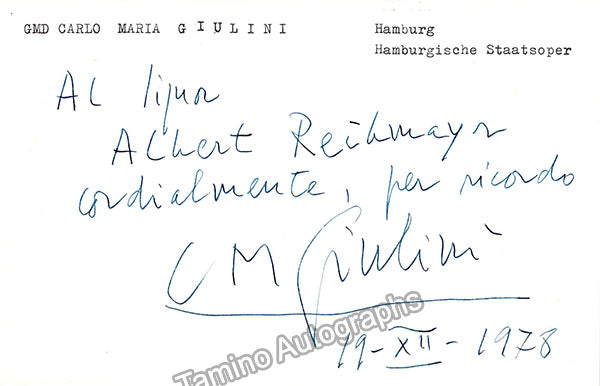 GMD CARLO MARIA GIULINI
Hamburg
Hamburgische Staatsoper
Al signor
Albert Reihmayr
cordialmente, per ricordo
CM Giulini
19-XII-1978
Tamino Autographs